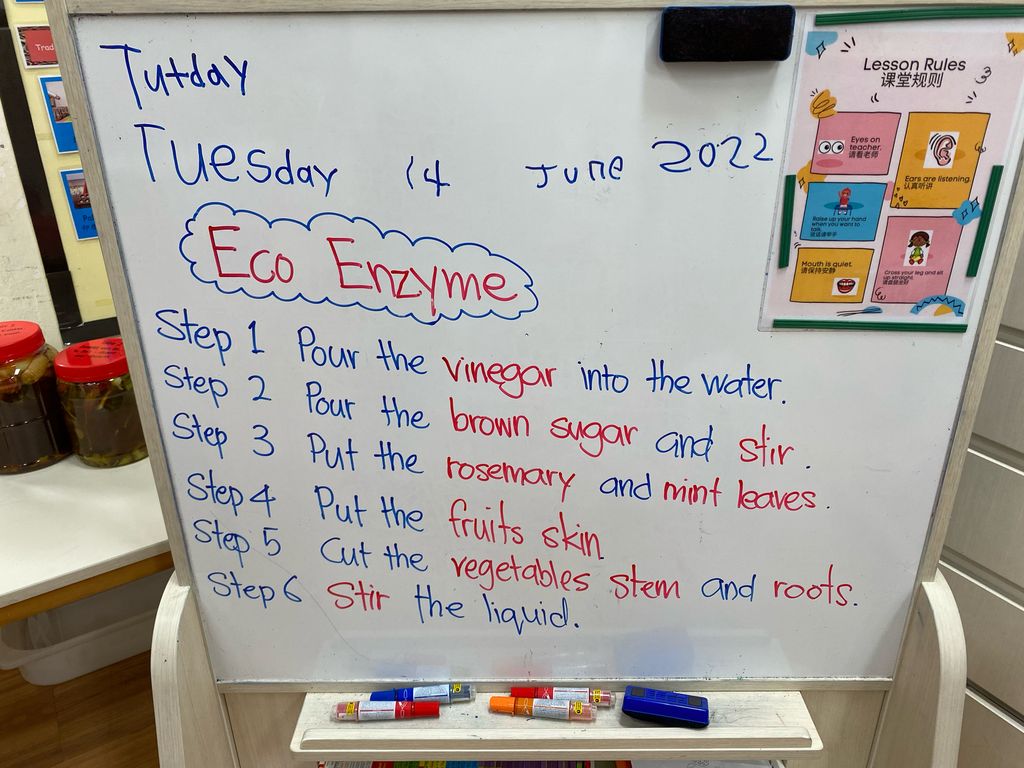 Tutday
Tuesday 14 June 2022
Eco Enzyme
Step 1 Pour the vinegar into the water.
Step 2 Pour the brown sugar and stir.
Step 3 Put the rosemary and mint leaves.
Step 4 Put the fruits skin
Step 5 Cut the vegetables stem and roots.
Step 6 Stir the liquid.
Lesson Rules
课堂规则
Eyes on
teacher.
请看老师
Ears are listening.
认真听讲
Raise up your hand
when you want to
talk.
说话请举手
Mouth is quiet.
请保持安静
Cross your leg and sit
up straight.
请盘腿坐好
Trad